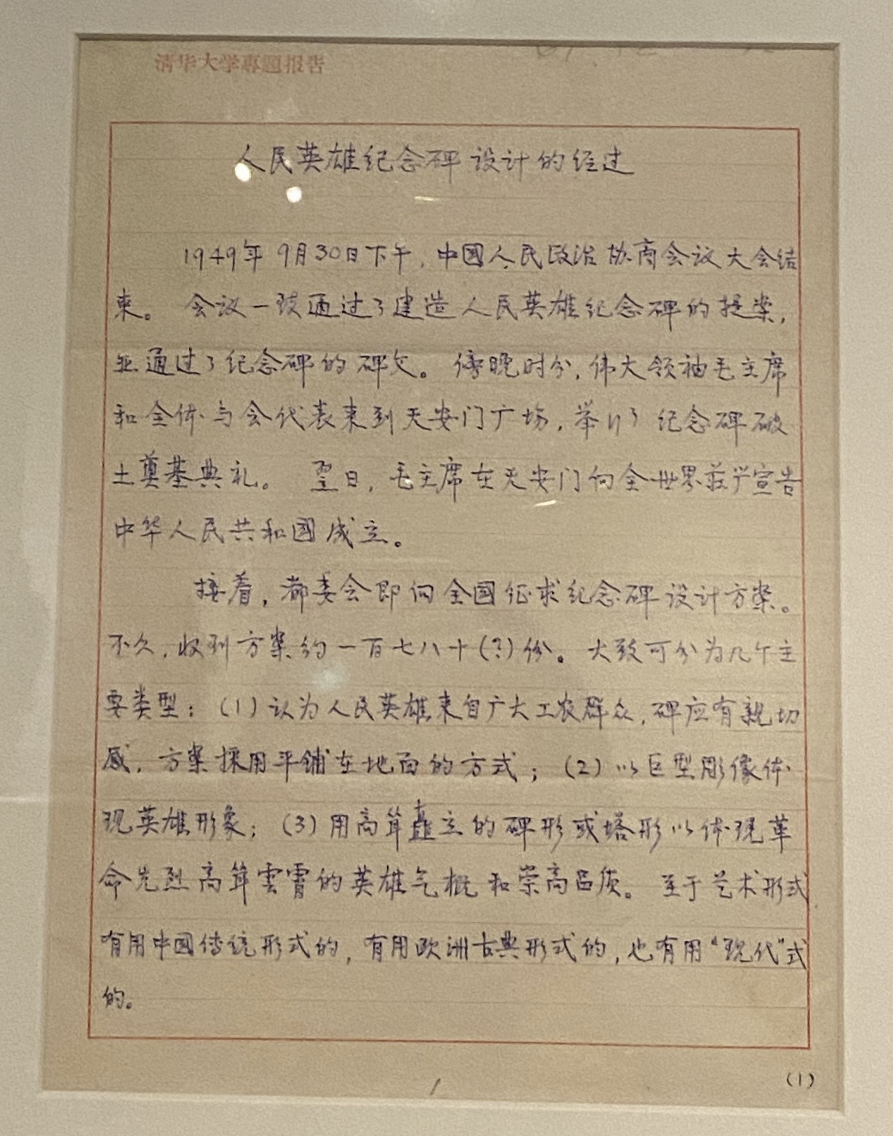 清华大学專題报告
人民英雄纪念碑设计的经过
1949年9月30日下午，中國人民政治协商会议大会结
束。会议一致通过了建造人民英雄纪念碑的提案，
並通过了纪念碑的碑文。傍晚时分，伟大领袖毛主席
和全体与会代表来到天安门广场，举行了纪念碑破
土奠基典礼。翌日，毛主席在天安门向全世界莊严宣告
中华人民共和國成立。
接着，都委会即向全国征求纪念碑设计方案。
不久，收到方案约一百七八十(?)份。大致可分为几个主
要类型：(1)认为人民英雄来自广大工农群众，碑应有亲切
感，方案採用平铺在地面的方式；(2)以巨型彫像体
现英雄形象；(3)用高耸矗立的碑形或塔形以体现革
命先烈高耸雲霄的英雄气概和崇高品质。至于艺术形式
有用中國传统形式的，有用欧洲古典形式的，也有用“现代”式
的。
1
(1)